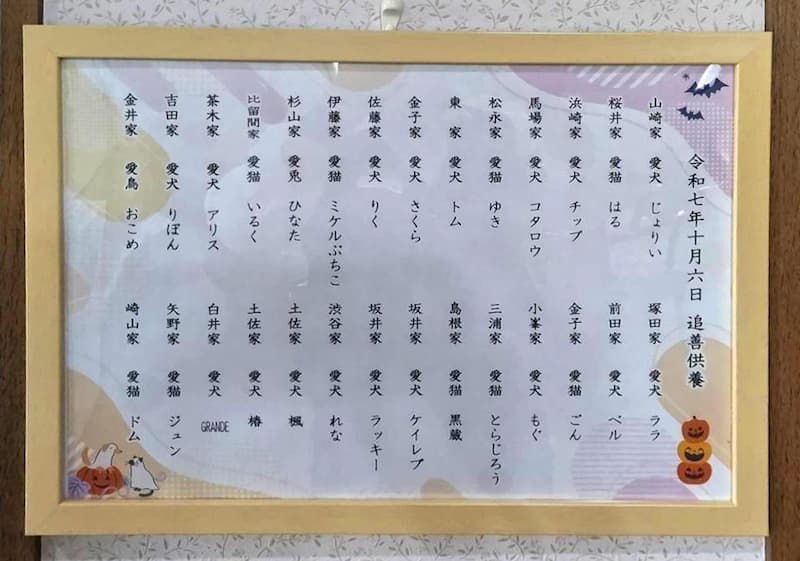 令和七年十月六日 追善供養
山崎家 愛犬 じょりい
桜井家 愛猫 はる
浜崎家 愛犬 チップ
馬場家 愛犬 コタロウ
松永家 愛猫 ゆき
東 家 愛犬 トム
金子家 愛犬 さくら
佐藤家 愛犬 りく
伊藤家 愛猫 ミケルぶちこ
杉山家 愛兎 ひなた
比留間家 愛猫 いるく
茶木家 愛犬 アリス
吉田家 愛犬 りぼん
金井家 愛鳥 おこめ
塚田家 愛犬 ララ
前田家 愛犬 ベル
金子家 愛猫 ごん
小峯家 愛犬 もぐ
三浦家 愛猫 とらじろう
島根家 愛猫 黒蔵
坂井家 愛犬 ケイレブ
坂井家 愛犬 ラッキー
渋谷家 愛犬 れな
土佐家 愛犬 楓
土佐家 愛犬 椿
白井家 愛犬 GRANDE
矢野家 愛猫 ジュン
崎山家 愛猫 ドム